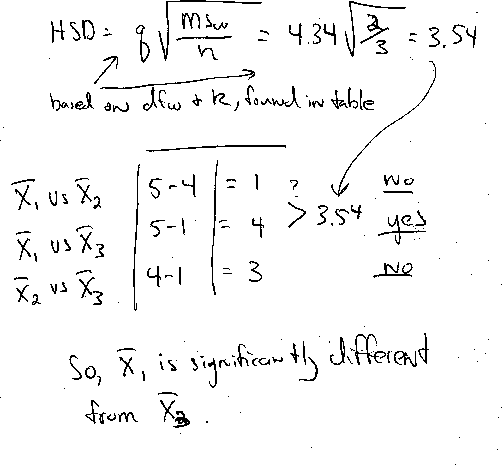 HSD = q √(MSw/n) = 4.34 √(2/3) = 3.54
based on dfw + k, found in table
X̄₁ vs X̄₂ |5-4| = 1 ? > 3.54 No
X̄₁ vs X̄₃ |5-1| = 4 yes
X̄₂ vs X̄₃ |4-1| = 3 No
So, X̄₁ is significantly different
from X̄₃.